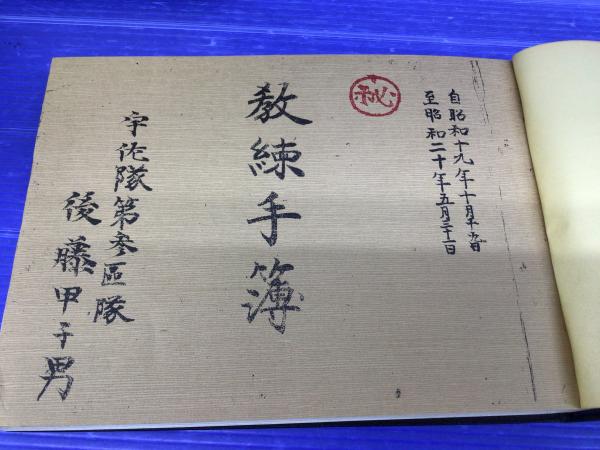 自昭和十九年十月十五日
至昭和二十年五月三十一日
秘
教練手簿
宇佐隊第参區隊
後藤甲子男